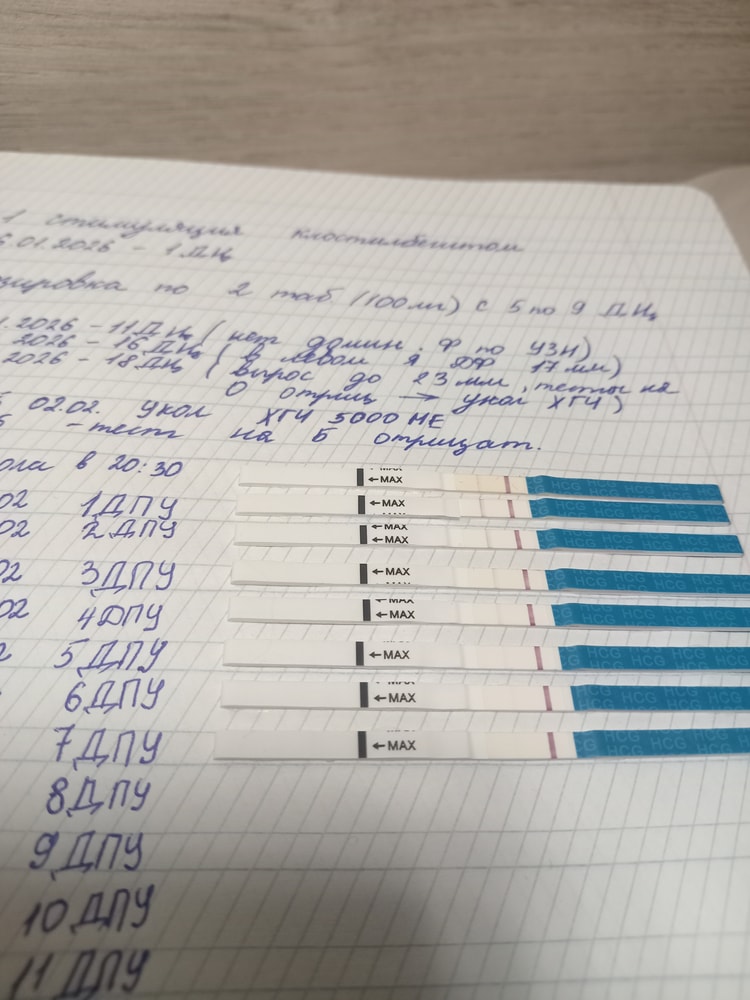 1 стимуляция клостилбегитом
.01.2026 - 1 ДЦ
зировка по 2 таб (100мг) с 5 по 9 ДЦ
.2026 - 11 ДЦ (нет домин. Ф по УЗИ)
2026 - 16 ДЦ (в левом я ДФ 17 мм)
2026 - 18 ДЦ (вырос до 23 мм, тесты на
О отриц → укол ХГЧ)
02.02. укол ХГЧ 5000 МЕ
- тест на Б отрицат.
ола в 20:30
02 1 ДПУ
02 2 ДПУ
02 3 ДПУ
02 4 ДПУ
2 5 ДПУ
6 ДПУ
7 ДПУ
8 ДПУ
9 ДПУ
10 ДПУ
11 ДПУ
MAX
←MAX
HCG HCG HCG HCG
←MAX
MAX
HCG HCG HCG HCG
MAX
←MAX
HCG HCG HCG HCG
←MAX
HCG HCG HCG
MAX
←MAX
HCG HCG HCG
←MAX
HCG HCG HCG
MAX
←MAX
HCG HCG HCG
←MAX
HCG HCG HCG